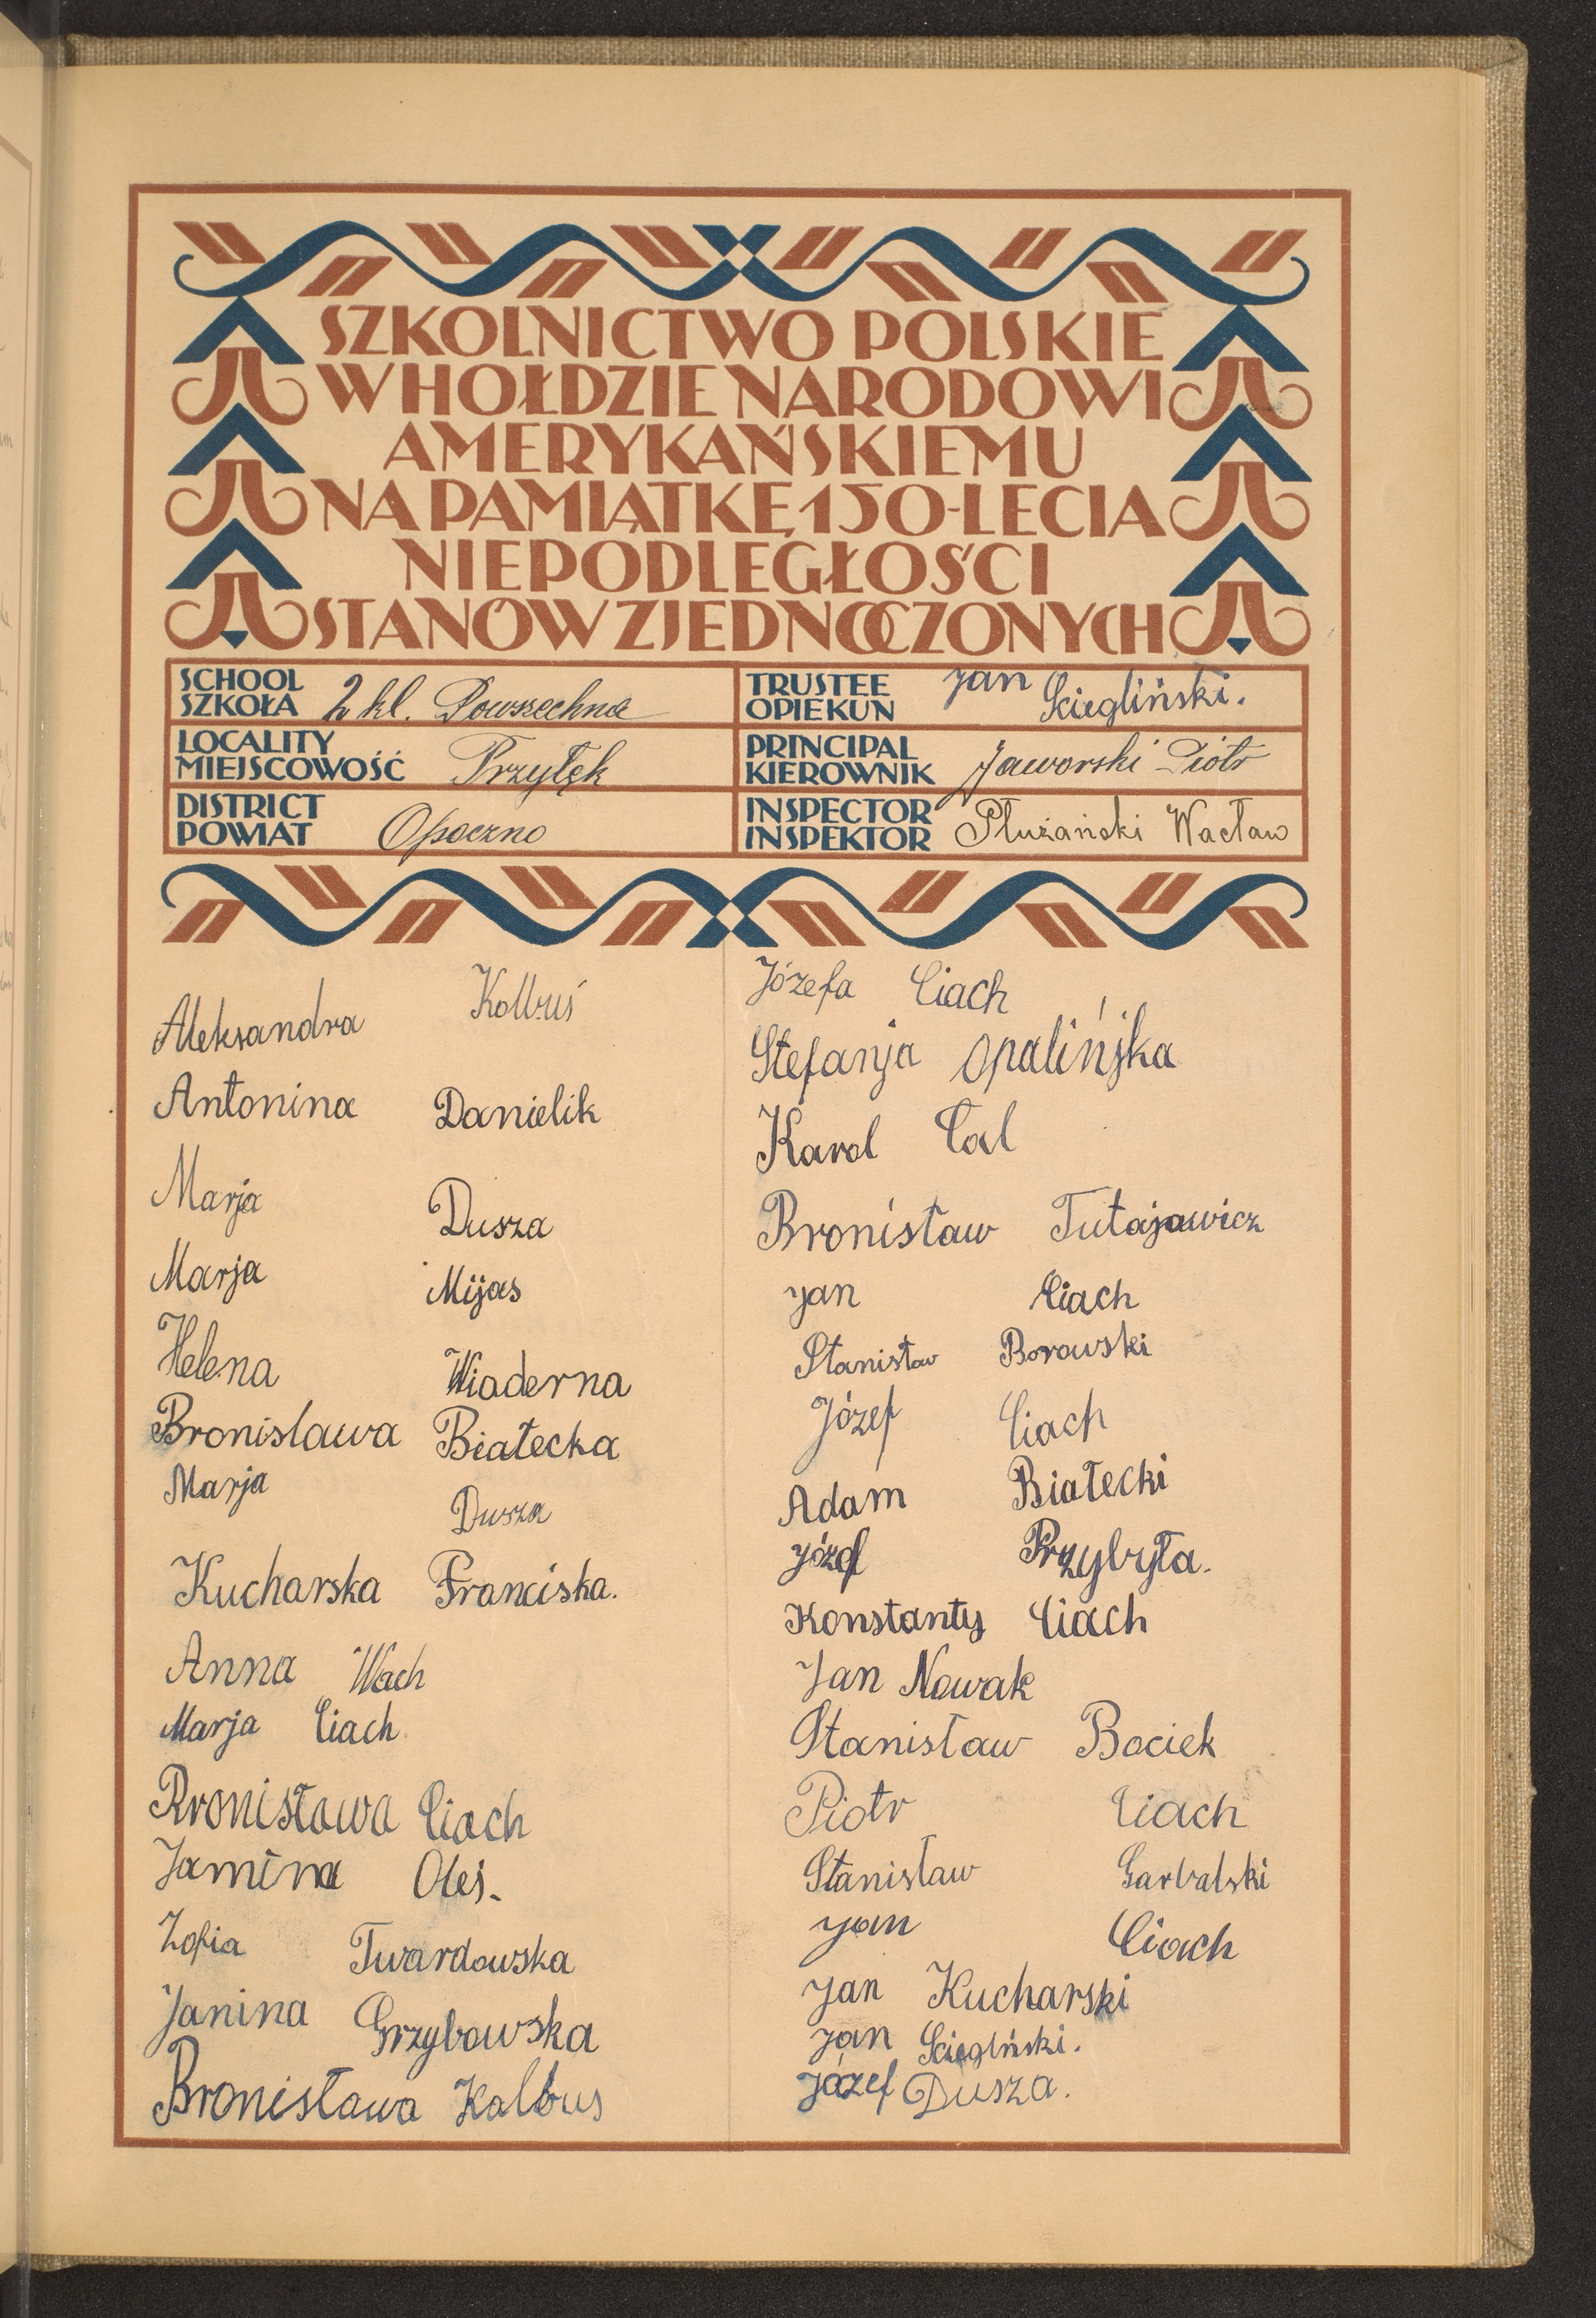 SZKOLNICTWO POLSKIE
W HOŁDZIE NARODOWI
AMERYKAŃSKIEMU
NA PAMIĄTKĘ 150-LECIA
NIEPODLEGŁOŚCI
STANÓW ZJEDNOCZONYCH
SCHOOL
SZKOŁA 2 kl. Powszechna
TRUSTEE
OPIEKUN Jan Ściegliński.
LOCALITY
MIEJSCOWOŚĆ Przyłęk
PRINCIPAL
KIEROWNIK Jaworski Piotr
DISTRICT
POWIAT Opoczno
INSPECTOR
INSPEKTOR Płużański Wacław
Aleksandra Kolbuś
Antonina Danielik
Marja Dusza
Marja Mijas
Helena Wiaderna
Bronislawa Białecka
Marja Dusza
Kucharska Franciska.
Anna Wach
Marja Ciach
Bronisława Ciach
Janina Oleś.
Zofia Twardowska
Janina Grzybowska
Bronisława Kolbus
Józefa Ciach
Stefanja Opalińska
Karol Cal
Bronisław Tutajawicz
Jan Ciach
Stanisław Borowski
Józef Ciach
Adam Białecki
Józef Przybyła.
Konstanty Ciach
Jan Nowak
Stanisław Bociek
Piotr Ciach
Stanisław Garbalski
Jan Ciach
Jan Kucharski
Jan Ściegłński.
Józef Dusza.